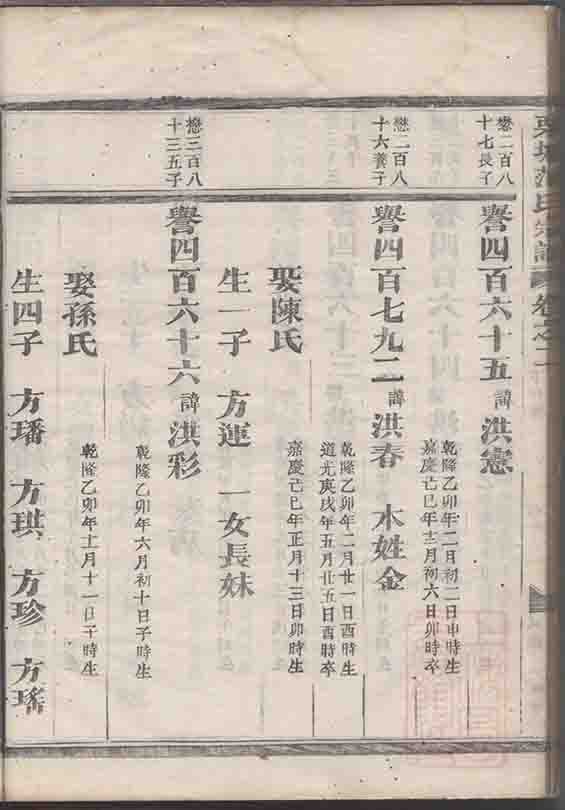 氏宗譜 卷之二
懋二百八
十七長子
譽四百六十五 諱 洪憲
乾隆乙卯年二月初二日申時生
嘉慶己巳年十二月初六日卯時卒
懋二百八
十六養子
譽四百七九二 諱 洪春 木姓金
乾隆乙卯年二月廿一日酉時生
道光庚戌年五月廿五日酉時卒
娶陳氏
嘉慶己巳年正月十三日卯時生
生一子 方運 一女長妹
懋三百八
十三五子
譽四百六十六 諱 洪彩
乾隆乙卯年六月初十日子時生
娶孫氏
乾隆乙卯年十一月十一日子時生
生四子 方璠 方珙 方珍 方瑤